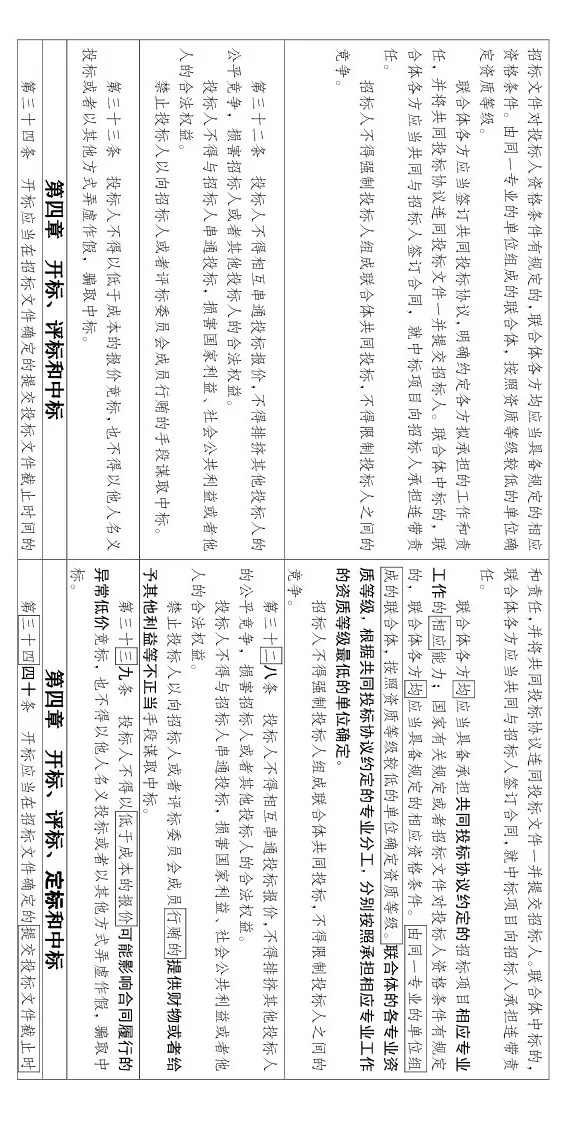 招标文件对投标人资格条件有规定的，联合体各方均应当具备规定的相应
资格条件。由同一专业的单位组成的联合体，按照资质等级较低的单位确
定资质等级。
联合体各方应当签订共同投标协议，明确约定各方拟承担的工作和责
任，并将共同投标协议连同投标文件一并提交招标人。联合体中标的，联
合体各方应当共同与招标人签订合同，就中标项目向招标人承担连带责
任。
招标人不得强制投标人组成联合体共同投标，不得限制投标人之间的
竞争。
第三十二条 投标人不得相互串通投标报价，不得排挤其他投标人的
公平竞争，损害招标人或者其他投标人的合法权益。
投标人不得与招标人串通投标，损害国家利益、社会公共利益或者他
人的合法权益。
禁止投标人以向招标人或者评标委员会成员行贿的手段谋取中标。
第三十三条 投标人不得以低于成本的报价竞标，也不得以他人名义
投标或者以其他方式弄虚作假，骗取中标。
第四章 开标、评标和中标
第三十四条 开标应当在招标文件确定的提交投标文件截止时间的
和责任，并将共同投标协议连同投标文件一并提交招标人。联合体中标的，
联合体各方应当共同与招标人签订合同，就中标项目向招标人承担连带责
任。
联合体各方均应当具备承担共同投标协议约定的招标项目相应专业
工作的相应能力；国家有关规定或者招标文件对投标人资格条件有规定
的，联合体各方均应当具备规定的相应资格条件。由同一专业的单位组
成的联合体，按照资质等级较低的单位确定资质等级。联合体的各专业资
质等级，根据共同投标协议约定的专业分工，分别按照承担相应专业工作
的资质等级最低的单位确定。
招标人不得强制投标人组成联合体共同投标，不得限制投标人之间的
竞争。
第三十二八条 投标人不得相互串通投标报价，不得排挤其他投标人
的公平竞争，损害招标人或者其他投标人的合法权益。
投标人不得与招标人串通投标，损害国家利益、社会公共利益或者他
人的合法权益。
禁止投标人以向招标人或者评标委员会成员行贿的提供财物或者给
予其他利益等不正当手段谋取中标。
第三十三九条 投标人不得以低于成本的报价可能影响合同履行的
异常低价竞标，也不得以他人名义投标或者以其他方式弄虚作假，骗取中
标。
第四章 开标、评标、定标和中标
第三十四四十条 开标应当在招标文件确定的提交投标文件截止时